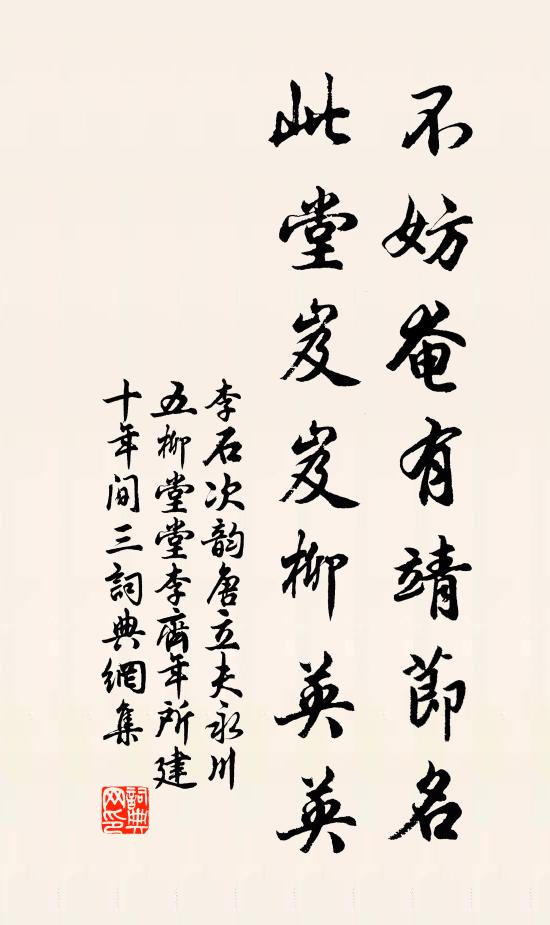 不妨奄有靖節名
此堂岌岌柳英英
李石次韵唐立夫永川
五柳堂堂李齊年所建
十年间三詞典網集
詞典
网印